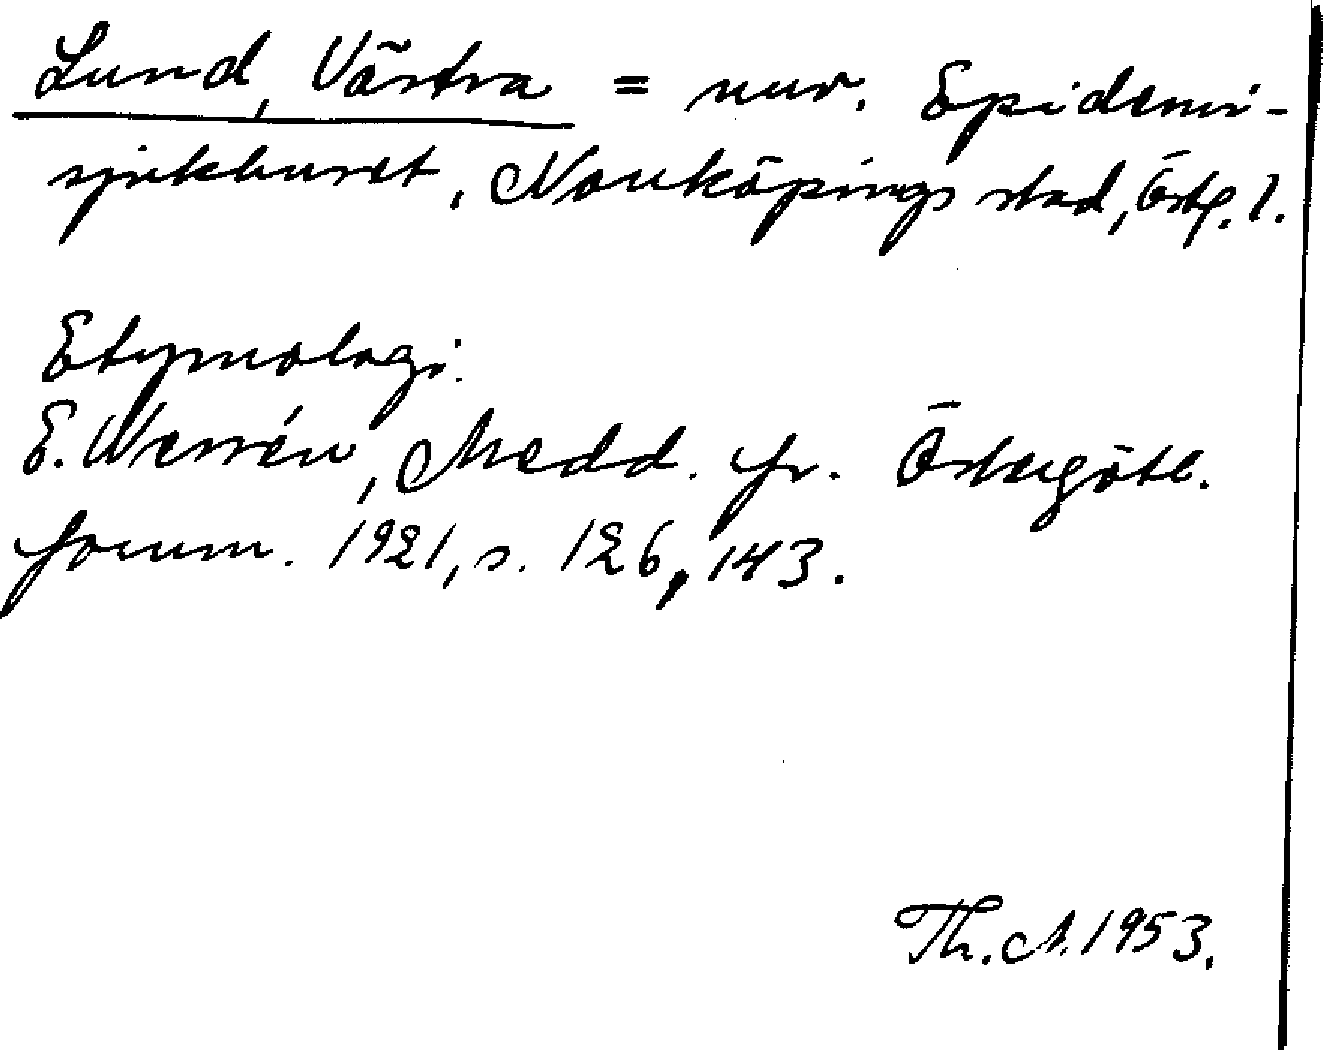 Lund, Västra = nuv. Epidemi-
sjukhuset, Norrköpings stad, Östg. l.
Etymologi.
E. Wessén, Medd. fr. Östergötl.
fornm. 1921, s. 126, 143.
Th. A. 1953.